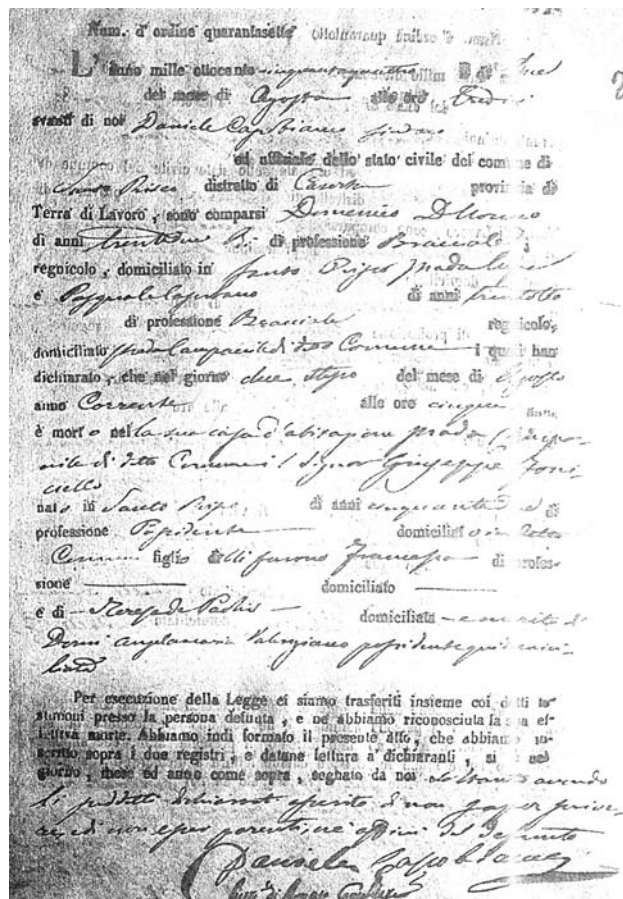 Num. d' ordine quarantasette
L' anno mille ottocento cinquantaquattro il dì due
del mese di Agosto alle ore tredici
avanti di noi Daniele Capobianco Sindaco
ed uffiziale dello stato civile del comune di
Santo Prisco distretto di Caserta provincia di
Terra di Lavoro, sono comparsi Domenico
di anni trentadue di professione Bracciale
regnicolo, domiciliato in Santo Prisco strada
e Pasquale di anni trentotto
di professione Bracciale regnicolo,
domiciliato strada Campanile di detto Comune i quali han
dichiarato, che nel giorno due stesso del mese di Agosto
anno Corrente alle ore cinque
è morto nella sua casa d'abitazione strada Campa-
nile di detto Comune il Signor Giuseppe
nato in Santo Prisco di anni cinquanta
professione Possidente domiciliato in detto
Comune figlio delli furono Francesco di profes-
sione domiciliato
e di Teresa de Paolis domiciliata e marito di
Donna Angelamaria Valenziano possidente qui domici-
liata
Per esecuzione della Legge ci siamo trasferiti insieme coi detti te-
stimoni presso la persona defunta, e ne abbiamo riconosciuta la sua ef-
fettiva morte. Abbiamo indi formato il presente atto, che abbiamo in-
scritto sopra i due registri, e datane lettura a' dichiaranti, si è nel
giorno, mese ed anno come sopra, segnato da noi soltanto avendo
li suddetti dichiaranti asserito di non saper scrive-
re, e di non esser parenti, nè affini del defunto
Daniele Capobianco